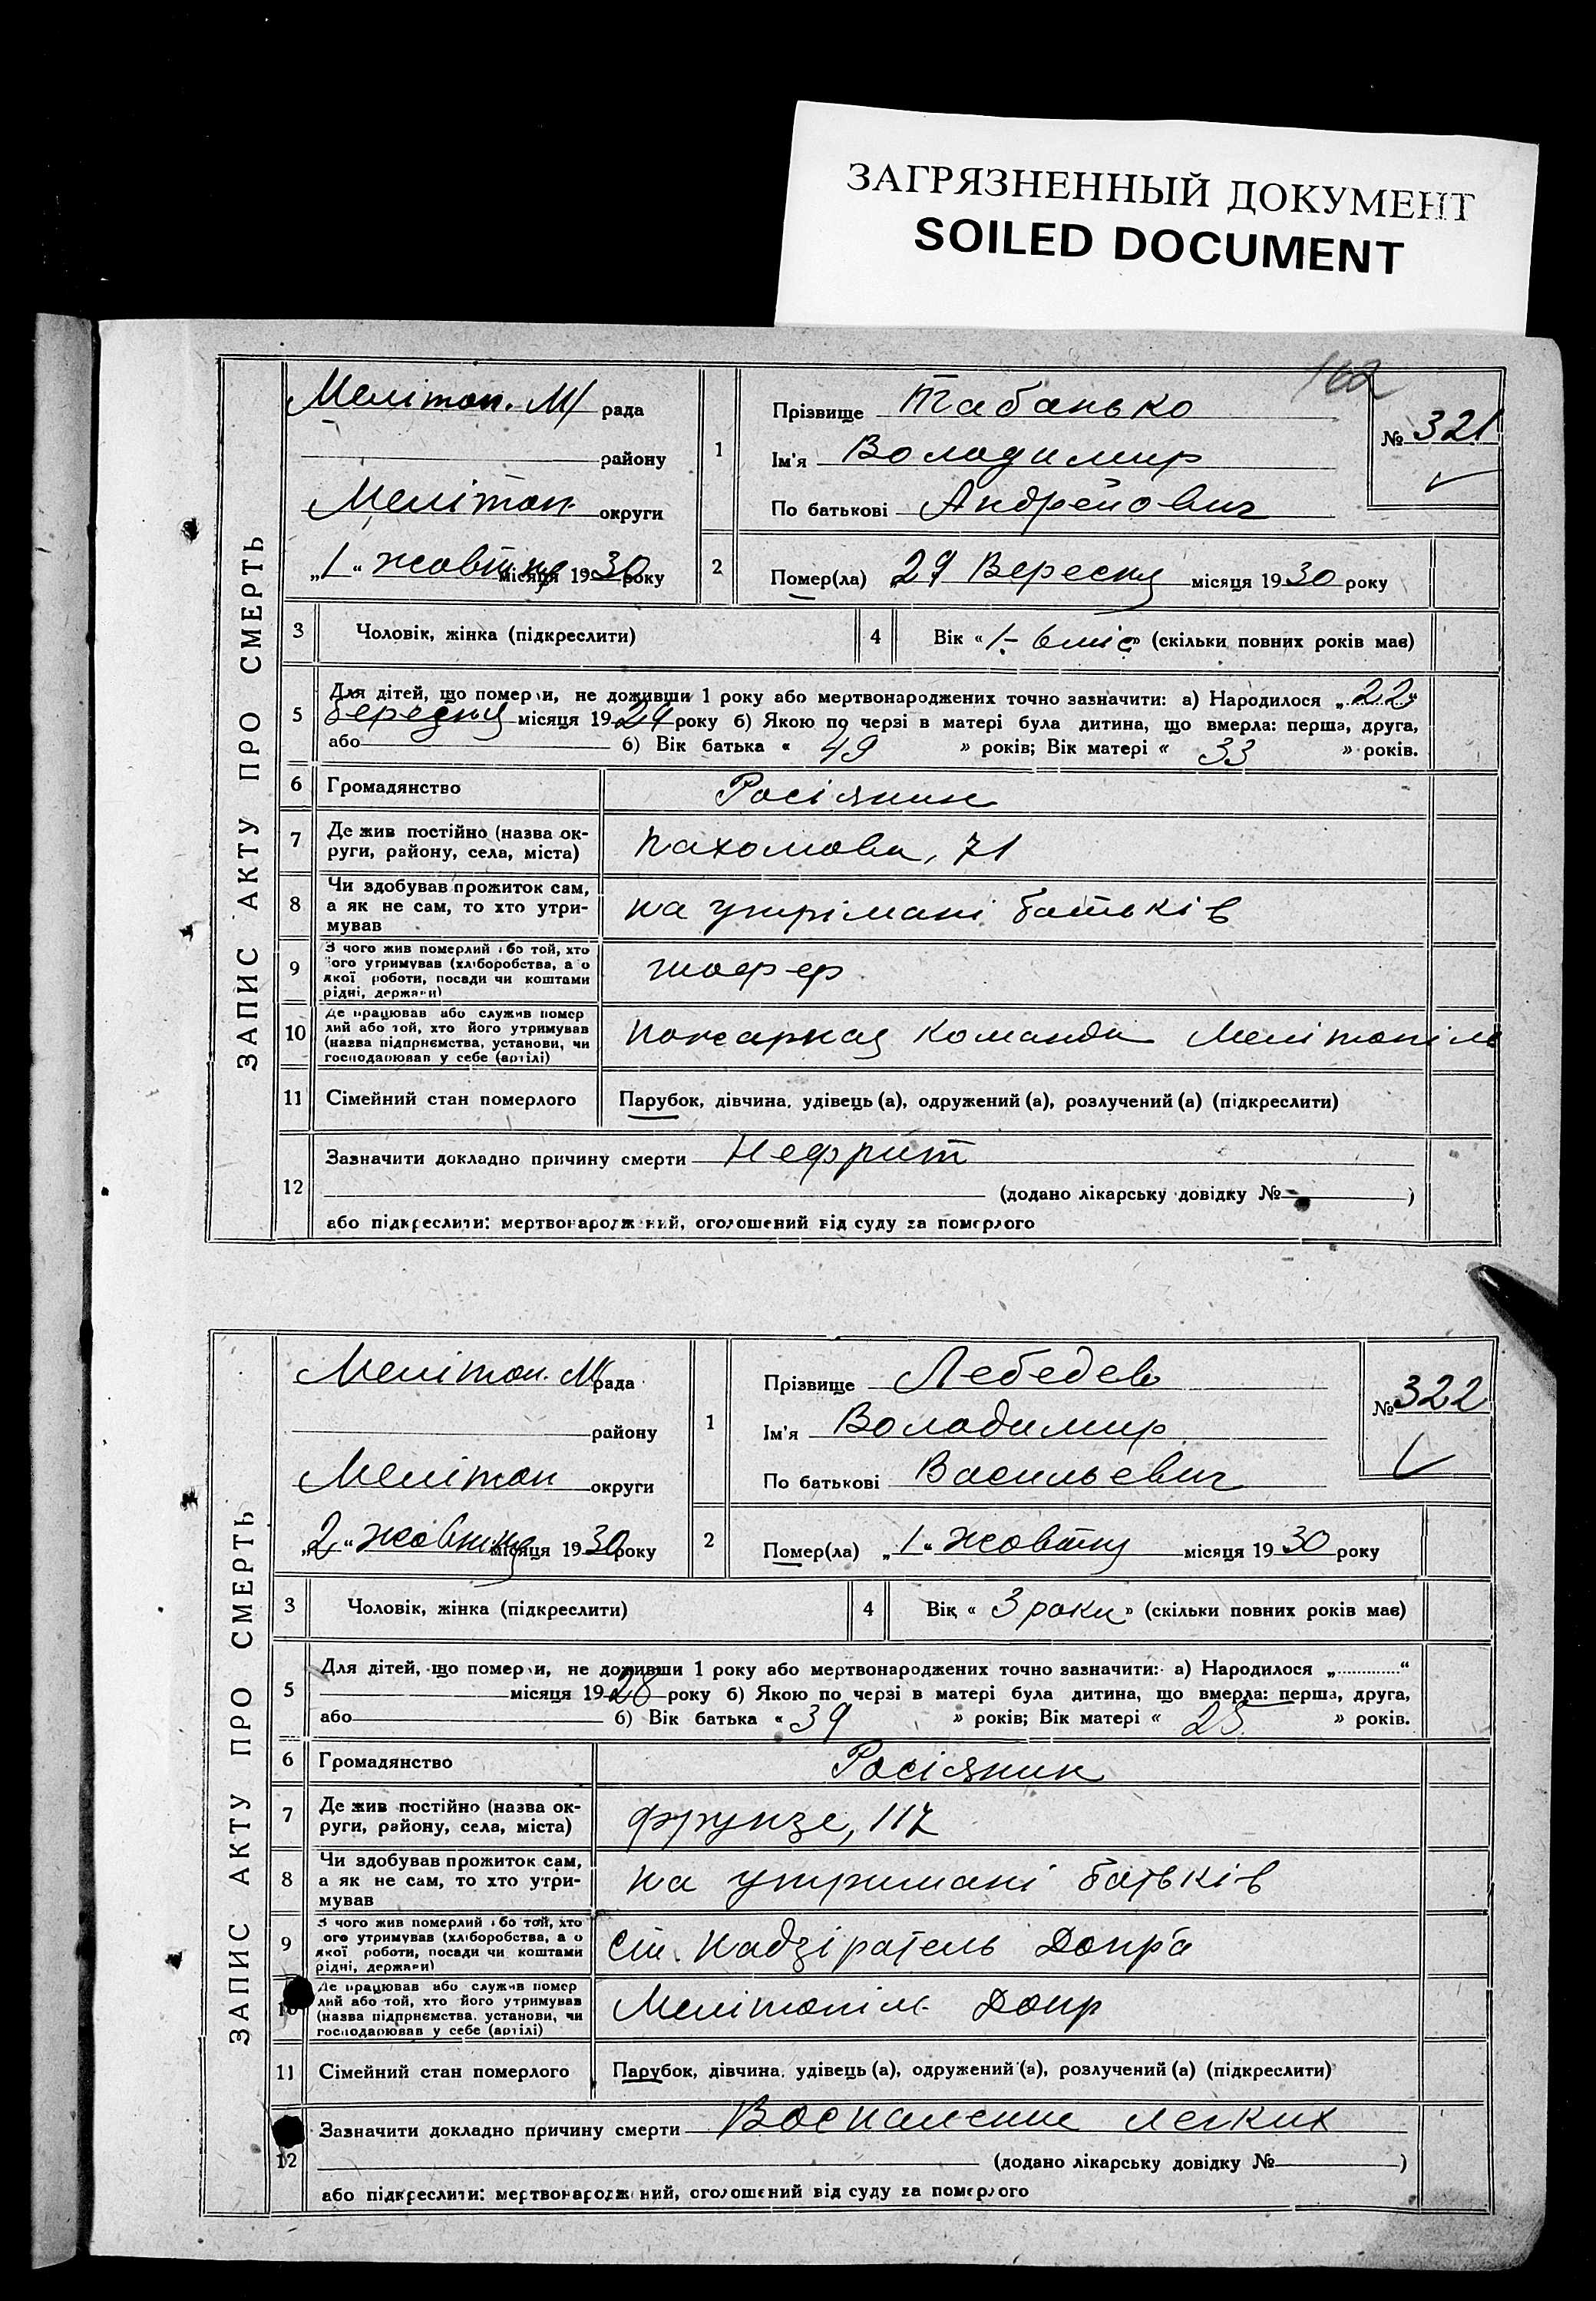 ЗАГРЯЗНЕННЫЙ ДОКУМЕНТ
SOILED DOCUMENT
162
ЗАПИС АКТУ ПРО СМЕРТЬ
Мелітоп. М/ рада
району
Мелітоп. округи
„1“ жовтня місяця 1930 року
1
Прізвище Табанько
Ім'я Володимир
По батькові Андрейович
№ 321
2
Помер(ла) 29 Вересня місяця 1930 року
3 Чоловік, жінка (підкреслити)
4 Вік « 1 - 6 міс » (скільки повних років мав)
5
Для дітей, що померли, не доживши 1 року або мертвонароджених точно зазначити: а) Народилося „22“
березня місяця 1929 року б) Якою по черзі в матері була дитина, що вмерла: перша, друга,
або б) Вік батька « 49 » років; Вік матері « 33 » років.
6 Громадянство Росіянин
7 Де жив постійно (назва ок-
руги, району, села, міста) Пахомова, 71
8 Чи здобував прожиток сам,
а як не сам, то хто утри-
мував на утрімані батьків
9 З чого жив померлий або той, хто
його утримував (хліборобства, а о
якої роботи, посади чи коштами
рідні, держави) шофер
10 Де працював або служив помер
лий або той, хто його утримував
(назва підприємства, установи, чи
господарював у себе (артілі) Пожарная Команда Мелітопіль
11 Сімейний стан померлого Парубок, дівчина, удівець (а), одружений (а), розлучений (а) (підкреслити)
12
Зазначити докладно причину смерти Нефрит
(додано лікарську довідку № )
або підкреслити: мертвонароджений, оголошений від суду за померлого
ЗАПИС АКТУ ПРО СМЕРТЬ
Мелітоп. М/ рада
району
Мелітоп округи
„2“ жовтня місяця 1930 року
1
Прізвище Лебедев
Ім'я Володимир
По батькові Васильевич
№ 322
2
Помер(ла) „1“ жовтня місяця 1930 року
3 Чоловік, жінка (підкреслити)
4 Вік « 3 роки » (скільки повних років мав)
5
Для дітей, що померли, не доживши 1 року або мертвонароджених точно зазначити: а) Народилося „ “
місяця 1928 року б) Якою по черзі в матері була дитина, що вмерла: перша, друга,
або б) Вік батька « 39 » років; Вік матері « 25 » років.
6 Громадянство Росіянин
7 Де жив постійно (назва ок-
руги, району, села, міста) Фрунзе, 117
8 Чи здобував прожиток сам,
а як не сам, то хто утри-
мував на утримані батьків
9 З чого жив померлий або той, хто
ого утримував (хліборобства, а о
якої роботи, посади чи коштами
рідні, держави) Ст. Надзіратель Допр'а
10 Де працював або служив помер
лий або той, хто його утримував
(назва підприємства, установи, чи
господарював у себе (артілі) Мелітопіль Допр
11 Сімейний стан померлого Парубок, дівчина, удівець (а), одружений (а), розлучений (а) (підкреслити)
12
Зазначити докладно причину смерти Воспаление легких
(додано лікарську довідку № )
або підкреслити: мертвонароджений, оголошений від суду за померлого